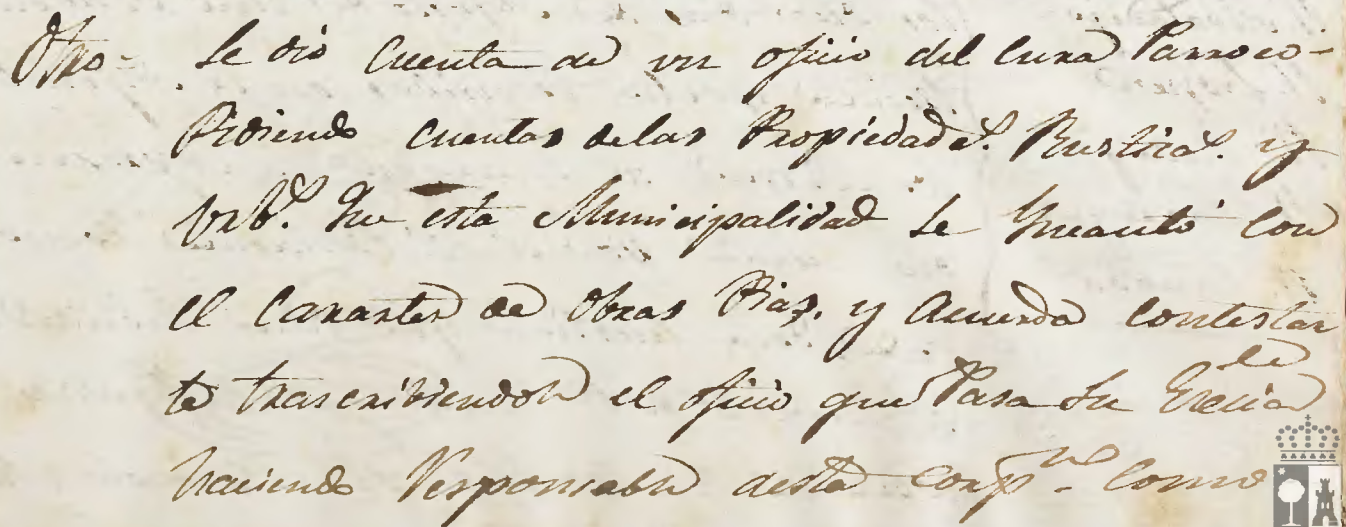 Otro- Se dio Cuenta de un oficio del Cura Parroco-
Pidiendo cuentas delas Propiedades. Rusticas. y
Urbs. Que esta Municipalidad se Yncautó con
el Caracter de Obras Pias. y acuerda contestar
le trascribiendole el oficio que Pasa Su Excia
haciendo Responsable aesta Corpn. como